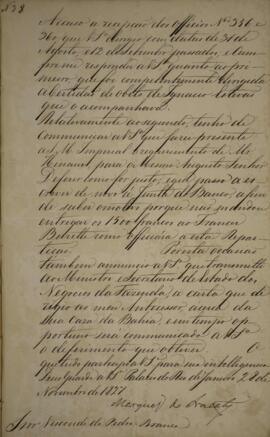 Nº 38
Accuso a recepção dos Officios Nos. 356 e
361, que V.Sa. dirigio com datas de 31 de
Agosto, e 12 de Setembro passados, e cum
pre-me responder a V.Sa. quanto ao pri-
meiro, que foi competentemente dirigida
a Certidão de obito de Ignacio
que o acompanhava.
Relativamente ao segundo, tenho de
communicar a V.Sa. que fiz presente
a S. M. Imperial o requerimento de Mr.
para o Mesmo Augusto Senhor
Deferir como for justo, e que passo a es-
crever de novo á Junta do Banco, a fim
de saber o motivo porque não
entregar os 1500 francos ao Francez
como officiára a esta Repar-
tição.
tambem annuncio a V.Sa. que transmitti
ao Ministro e Secretario de Estado dos
Negocios da Fazenda, a carta que di-
rigio ao meu Antecessor, acerca da
Sua Casa da Bahia, e em tempo op-
portuno será communicado a V.Sa.
o deferimento que obtiver. O
que tudo participo a V.Sa. para sua intelligencia.
Deus Guarde a V.Sa. Palacio do Rio de Janeiro 24 de
Novembro de 1827.
Marquez de
Snr. Visconde de Pedra Branca